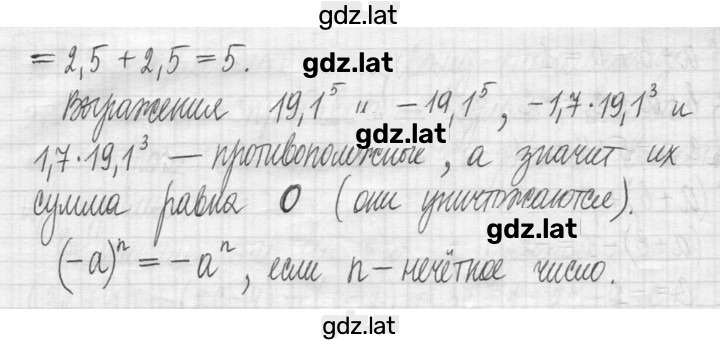 gdz.lat
= 2,5 + 2,5 = 5.
gdz.lat
Выражения 19,1⁵ и −19,1⁵, −1,7·19,1³ и
gdz.lat
1,7·19,1³ — противоположные, а значит их
сумма равна 0 (они уничтожаются).
gdz.lat
(−a)ⁿ = −aⁿ, если n − нечётное число.
gdz.lat